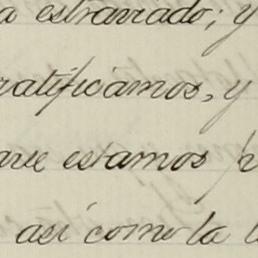 a estraviado; y
ratificamos, y
que estamos p
así como la l